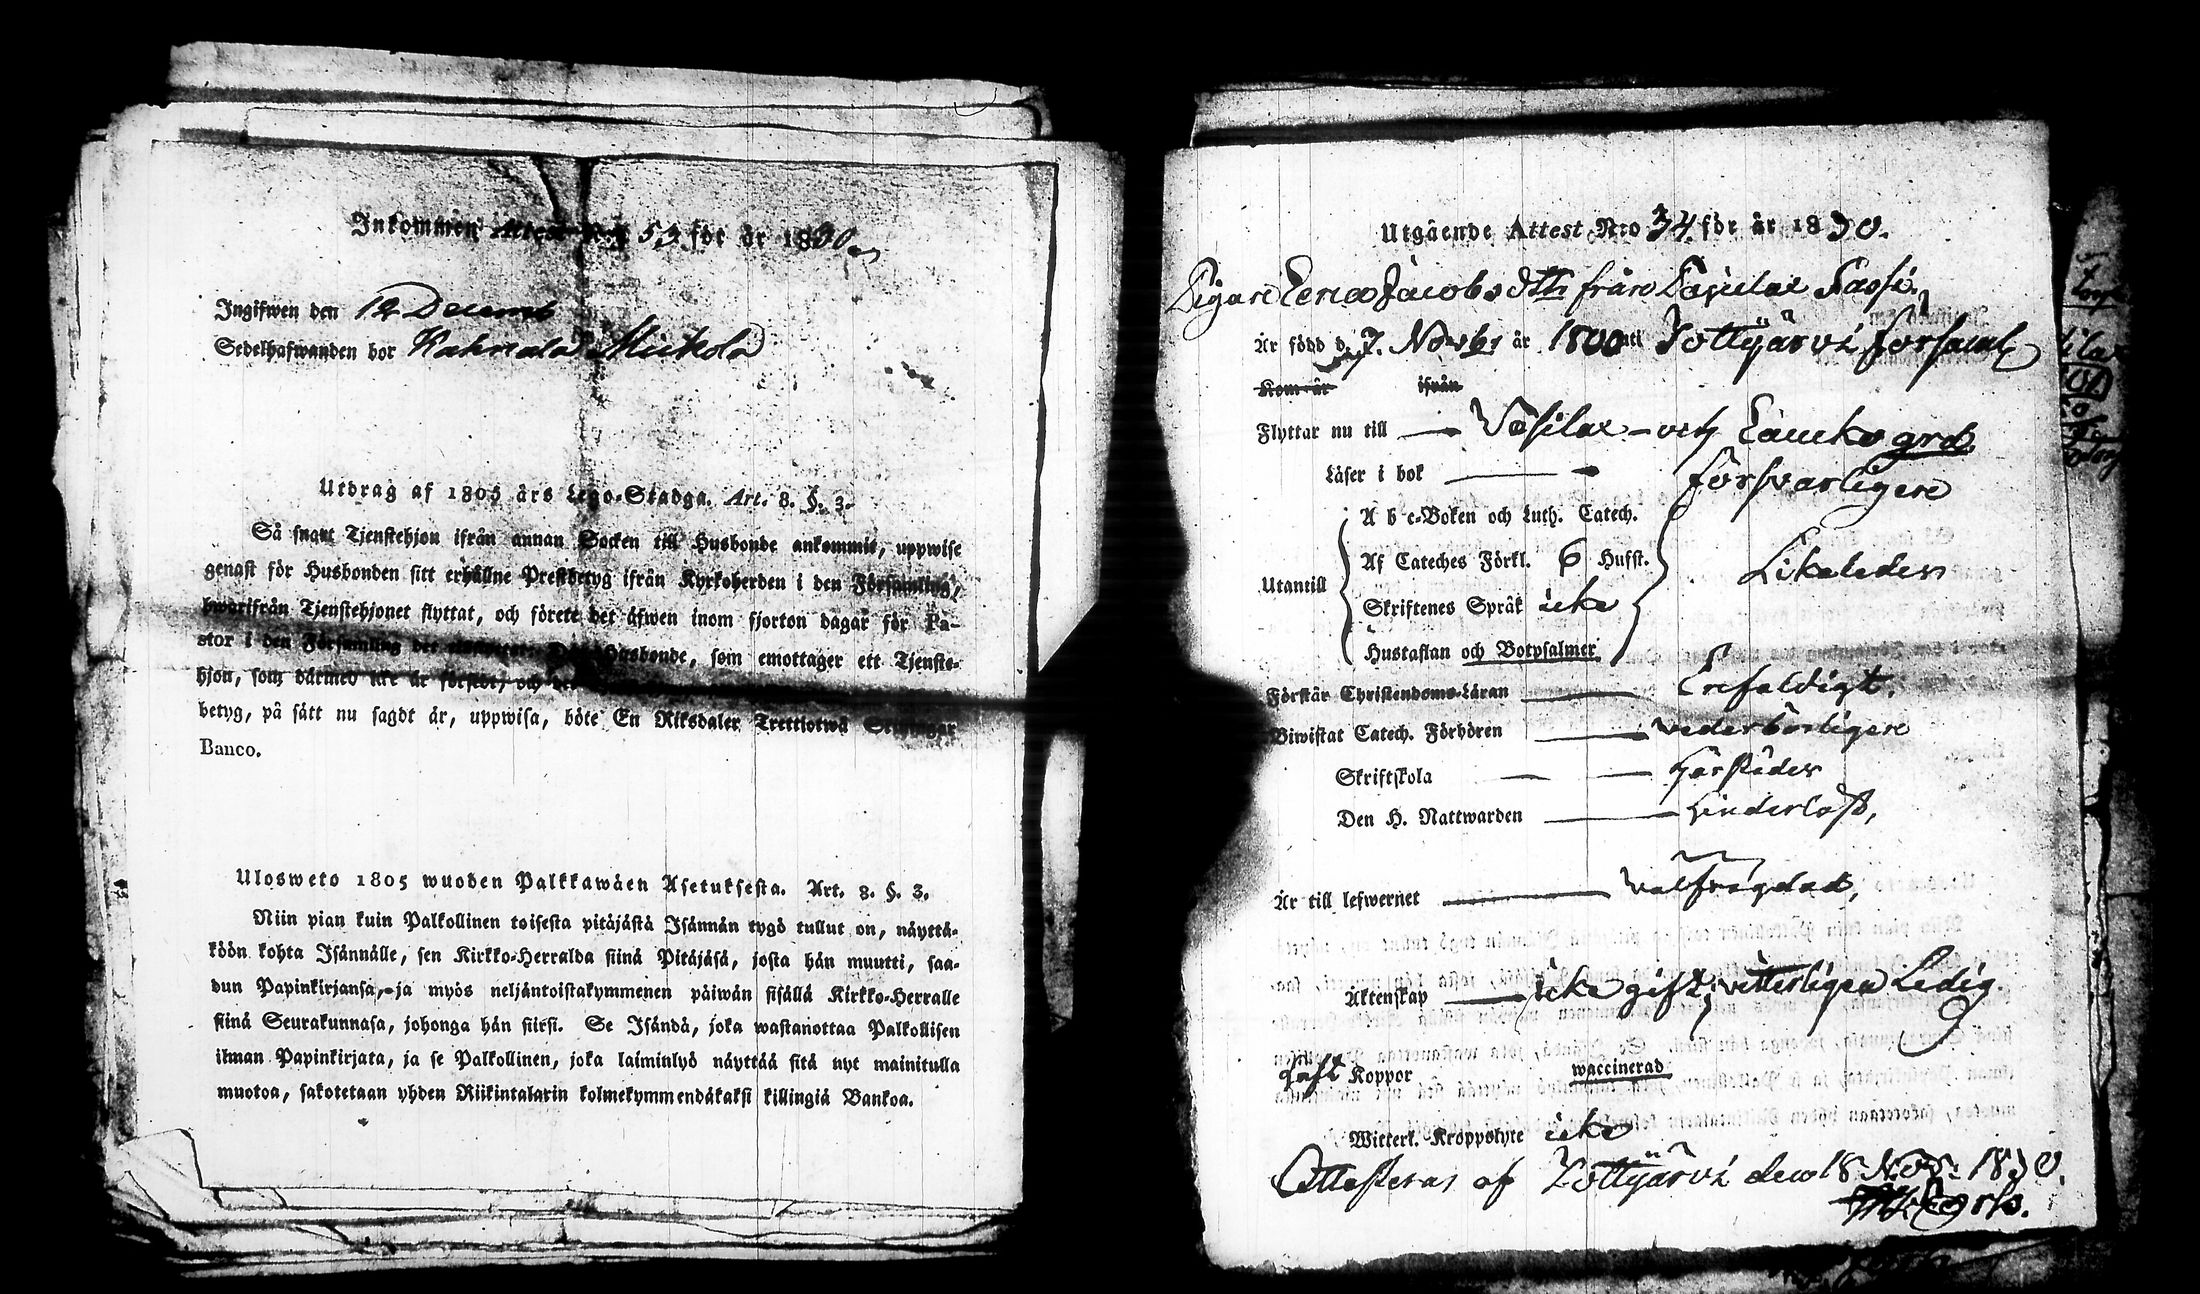 Inkommen Attest N:o 53 för år 1830
Ingifwen den 12 Decemb
Sedelhafwanden bor Kahrala Mickola
Utdrag af 1805 års Lego-Stadga. Art. 8. §. 3.
Så snart Tjenstehjon ifrån annan Socken till Husbonde ankommit, uppwise
genast för Husbonden sitt erhållne Prestbetyg ifrån Kyrkoherden i den Församling,
hwarifrån Tjenstehjonet flyttat, och förete det äfwen inom fjorton dagar för Pa-
stor i den Församling der Husbonde, som emottager ett Tjenste-
hjon, som därmed icke är försedt, och
betyg, på sätt nu sagdt är, uppwisa, böte En Riksdaler Trettiotwå Skillingar
Banco.
Ulosweto 1805 wuoden Palkkawäen Asetuksesta. Art. 8. §. 3.
Niin pian kuin Palkollinen toisesta pitäjästä Isännän tygö tullut on, näyttä-
köön kohta Isännälle, sen Kirkko-Herralda siinä Pitäjäsä, josta hän muutti, saa-
dun Papinkirjansa, ja myös neljäntoistakymmenen päiwän sisällä Kirkko-Herralle
siinä Seurakunnasa, johonga hän siirsi. Se Isändä, joka wastanottaa Palkollisen
ilman Papinkirjata, ja se Palkollinen, joka laiminlyö näyttää sitä nyt mainitulla
muotoa, sakotetaan yhden Riikintalarin kolmekymmendäkaksi killingiä Bankoa.
Utgående Attest N:o 34 för år 1830.
Pigan Lena Jacobsdtr från
Är född d. 7. Novbr år 1800 uti Tottijärvi församl
Kom år ifrån
Flyttar nu till Vesilax och Laucko grd
Läser i bok försvarligen
A b c-Boken och Luth. Catech.
Af Cateches Förkl. 6 Hufst. Likaledes
Utantill
Skriftenes Språk icke
Hustaflan och Botpsalmer
Förstår Christendoms-Läran Enfaldigt.
Biwistat Catech. Förhören vederbörligen
Skriftskola
Den H. Nattwarden
Är till lefwernet välfrägdad,
Äktenskap icke gift; vitterligen Ledig
haft Koppor waccinerad
Witterl. Kroppslyte icke
Attesteras af Tottijärvi den 18 Nov: 1830.